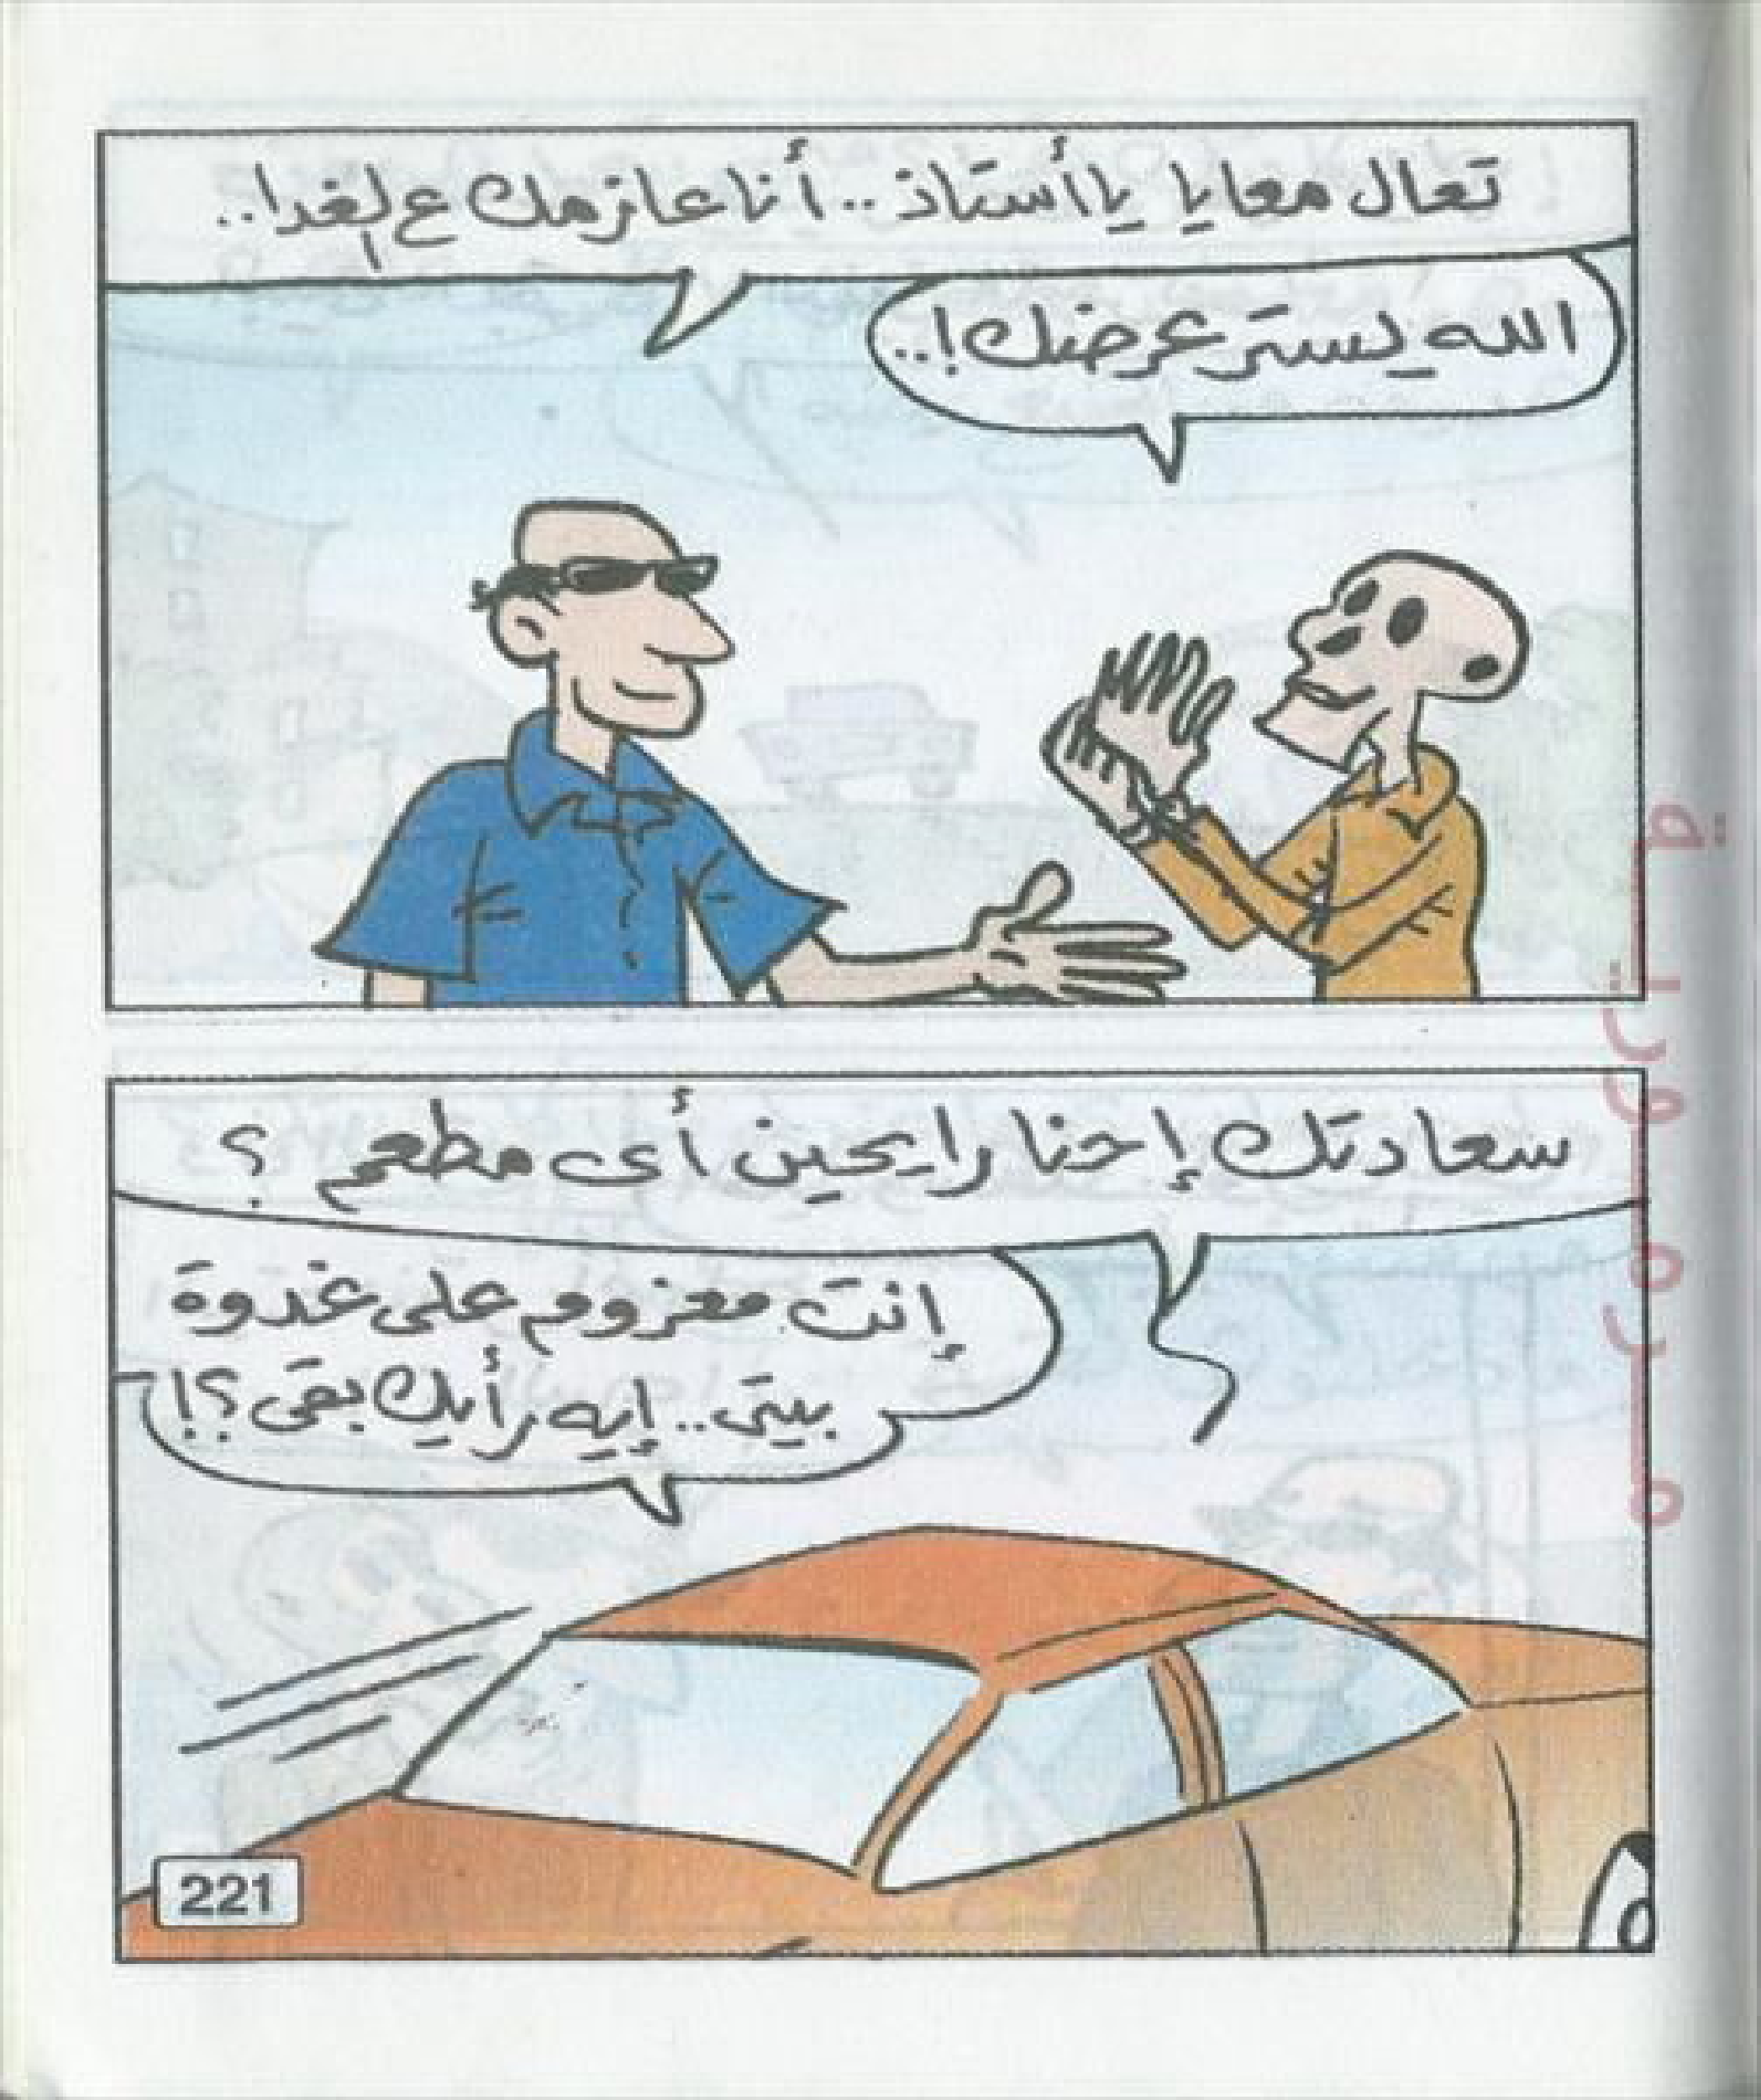 تعال معايا يا أستاذ.. أنا عازمك ع الغدا..
الله يستر عرضك!..
سعادتك إحنا رايحين أى مطعم ؟
إنت معزوم على غدوة
بيتى.. إيه رأيك بقى؟!
221